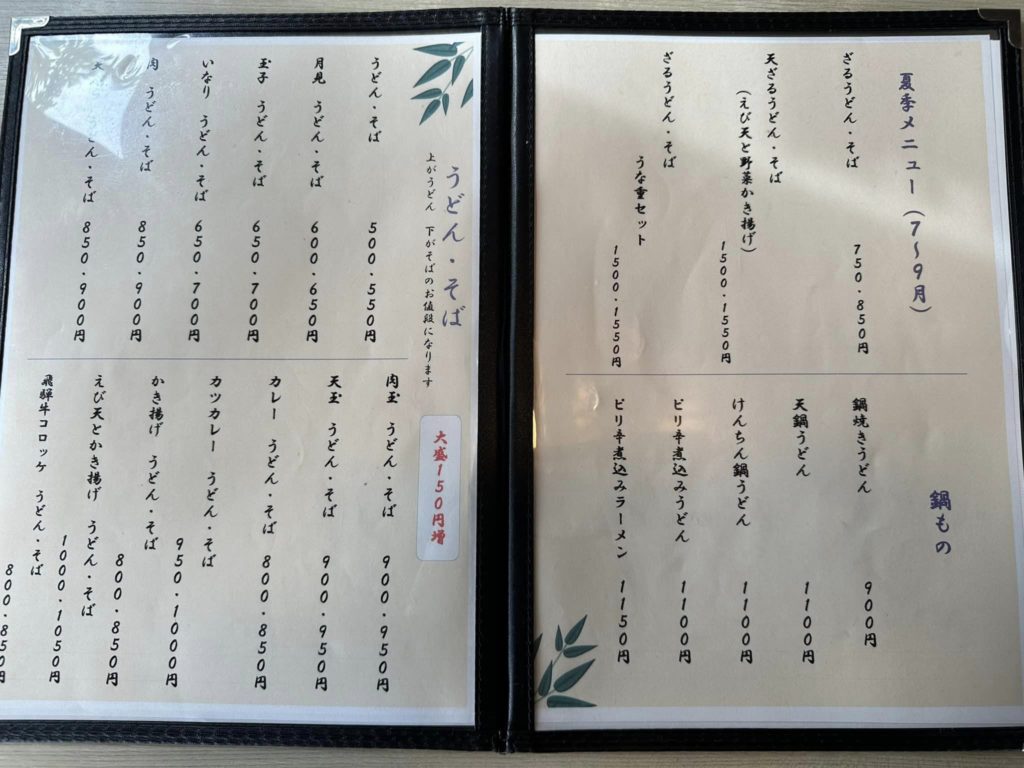 夏季メニュー(7〜9月)
ざるうどん・そば
750・850円
天ざるうどん・そば
(えび天と野菜かき揚げ)
1500・1550円
ざるうどん・そば
うな重セット
1500・1550円
鍋もの
鍋焼きうどん 900円
天鍋うどん 1100円
けんちん鍋うどん 1100円
ピリ辛煮込みうどん 1100円
ピリ辛煮込みラーメン 1150円
うどん・そば
上がうどん 下がそばのお値段になります
大盛150円増
うどん・そば 500・550円
月見 うどん・そば 600・650円
玉子 うどん・そば 650・700円
いなり うどん・そば 650・700円
肉 うどん・そば 850・900円
うどん・そば 850・900円
肉玉 うどん・そば 900・950円
天玉 うどん・そば 900・950円
カレー うどん・そば 800・850円
カツカレー うどん・そば
950・1000円
かき揚げ うどん・そば
800・850円
えび天とかき揚げ うどん・そば
1000・1050円
飛騨牛コロッケ うどん・そば
800・850円